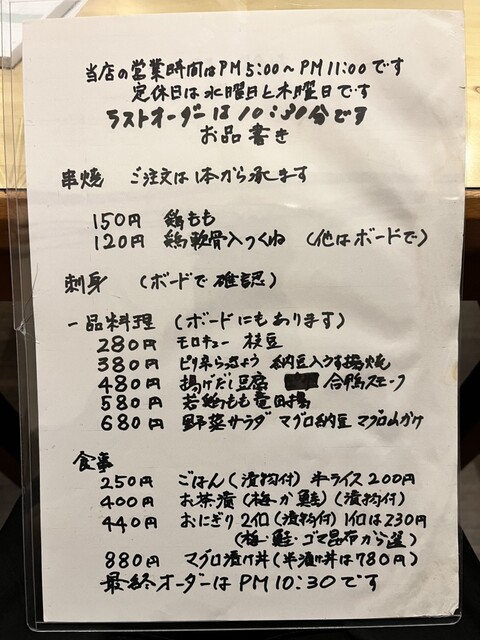 当店の営業時間はPM5:00～PM11:00です
定休日は水曜日と木曜日です
ラストオーダーは10:30分です
お品書き
串焼 ご注文は1本から承ます
150円 鶏もも
120円 鶏軟骨入つくね (他はボードで)
刺身 (ボードで確認)
一品料理 (ボードにもあります)
280円 モロキュー 枝豆
380円 ピリ辛らっきょう 納豆入うす揚焼
480円 揚げだし豆腐 合鴨スモーク
580円 若鶏もも竜田揚
680円 野菜サラダ マグロ納豆 マグロ山かけ
食事
250円 ごはん(漬物付) 半ライス200円
400円 お茶漬(梅か鮭)(漬物付)
440円 おにぎり2ケ(漬物付) 1ケは230円
(梅・鮭・ゴマ昆布から選)
880円 マグロ漬け丼(半漬け丼は780円)
最終オーダーはPM10:30です